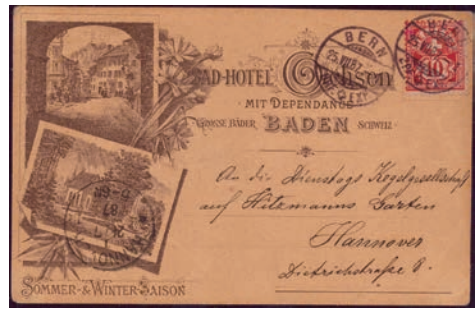 BAD-HOTEL Ochsen
MIT DEPENDANCE
GROSSE BÄDER BADEN SCHWEIZ
BERN
25.VII.87
10
An die Dienstags Kegelgesellschaft
auf Hitzmanns Garten
Hannover
Dietrichstraße 8.
SOMMER- & WINTER-SAISON